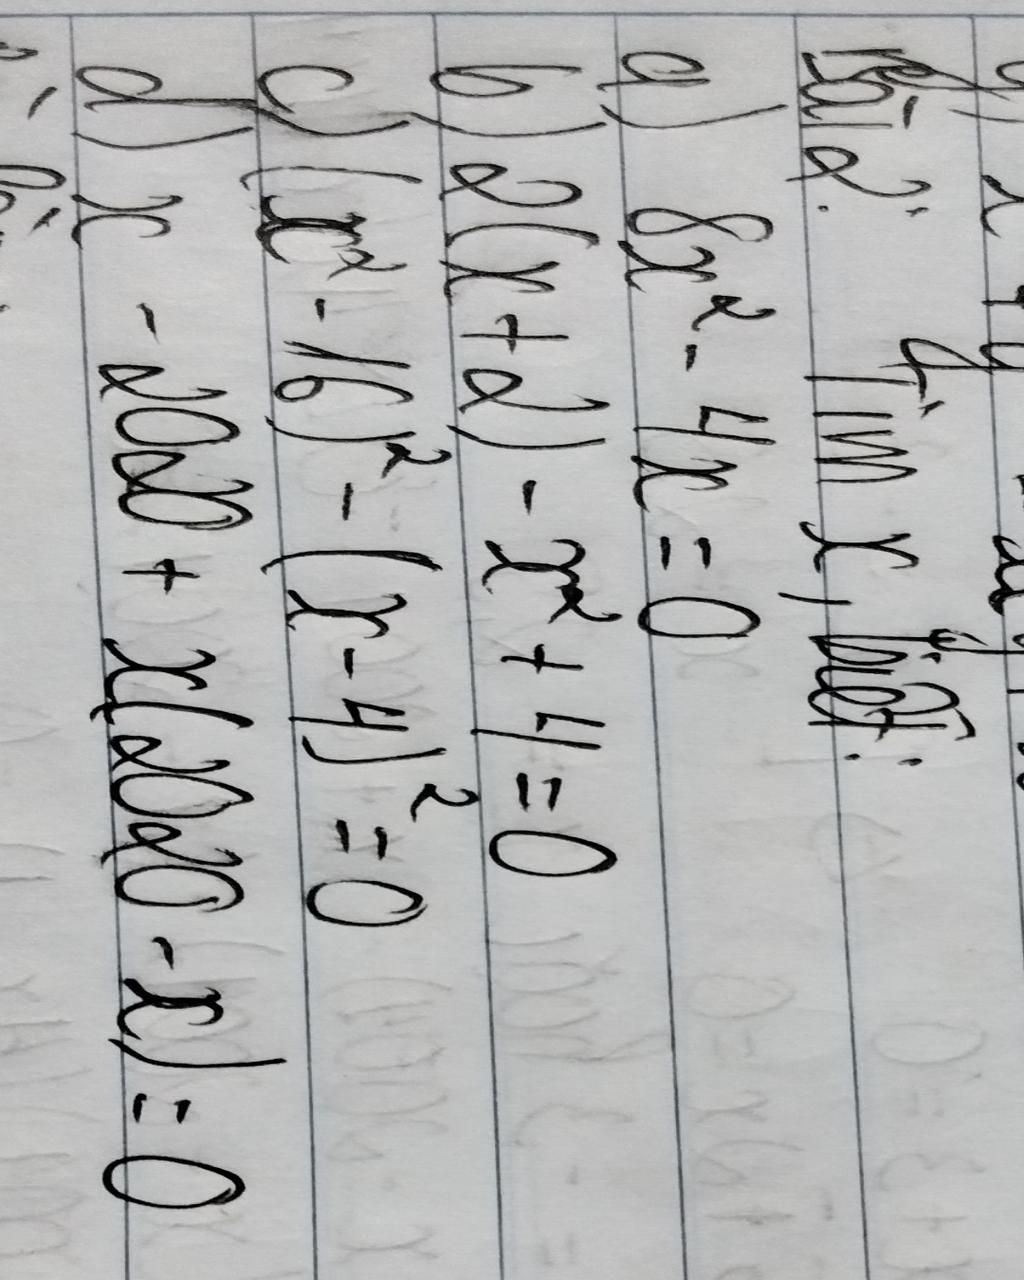 Bài 2: Tìm x, biết:
a) 8x² - 4x = 0
b) 2(x+2) - x² + 4 = 0
c) (x² - 16)² - (x - 4)² = 0
d) x - 2020 + x(2020 - x) = 0